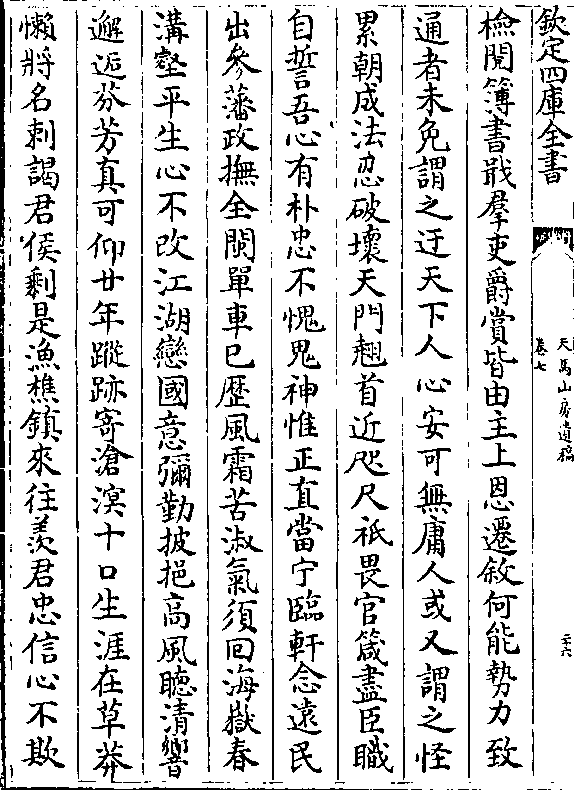 欽定四庫全書
天馬山房遺稿
卷七
二十六
檢閱簿書戢羣吏爵賞皆由主上恩遷敘何能勢力致
通者未免謂之迂天下人心安可無庸人或又謂之怪
累朝成法忍破壞天門翹首近咫尺祇畏官箴盡臣職
自誓吾心有朴忠不愧鬼神惟正直當宁臨軒念遠民
出參藩政撫全閩單車已歷風霜苦淑氣須回海嶽春
溝壑平生心不改江湖戀國意彌勤披挹高風聽清響
邂逅芬芳真可仰廿年蹤跡寄滄溟十口生涯在草莽
懶將名刺謁君侯剩是漁樵鎮來往羨君忠信心不欺